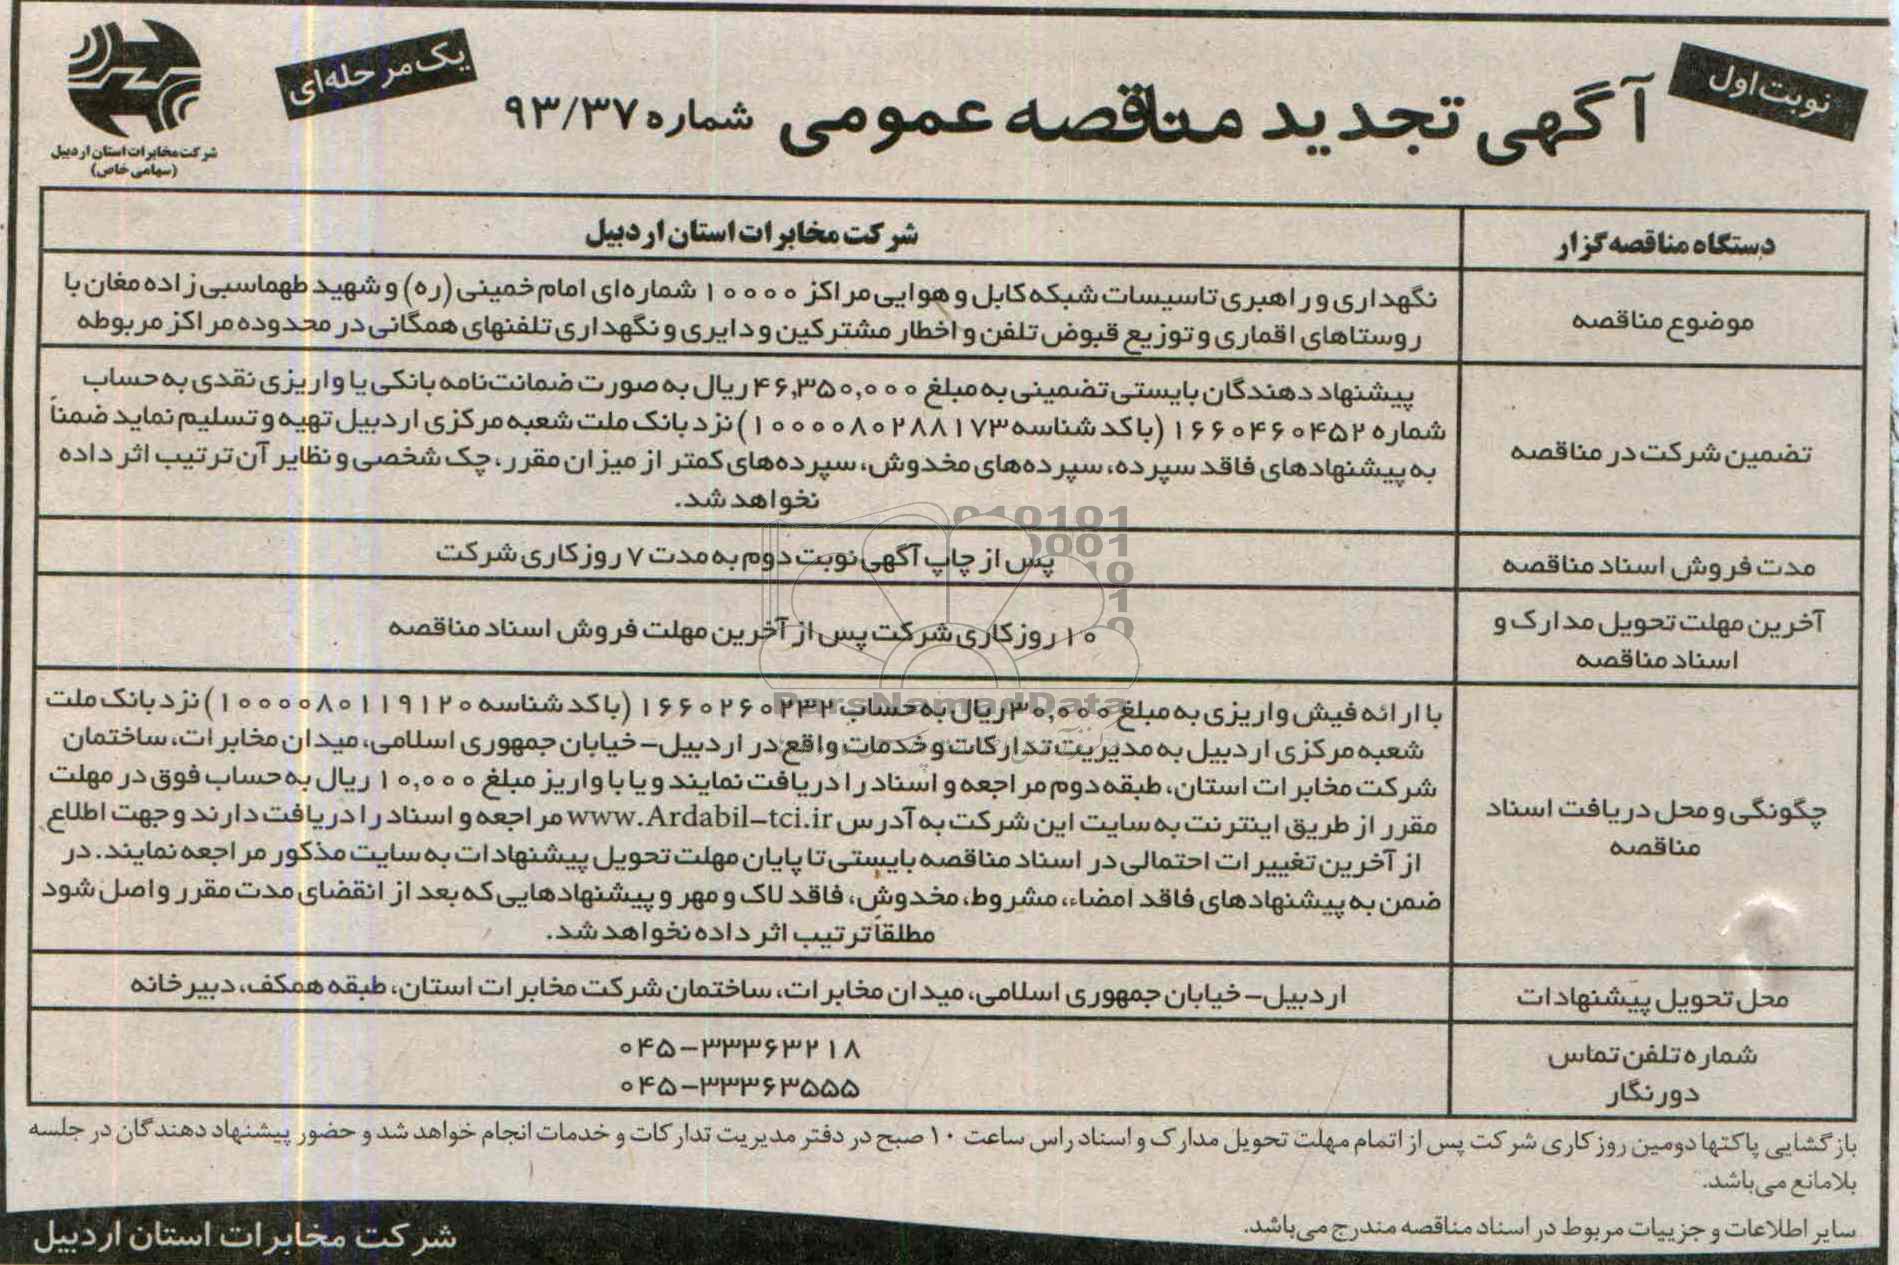 نوبت اول
یک مرحله‌ای
آگهی تجدید مناقصه عمومی شماره ۹۳/۳۷
شرکت مخابرات استان اردبیل
(سهامی خاص)
دستگاه مناقصه‌گزار
شرکت مخابرات استان اردبیل
موضوع مناقصه
نگهداری و راهبری تاسیسات شبکه کابل و هوایی مراکز ۱۰۰۰۰ شماره‌ای امام خمینی (ره) و شهید طهماسبی زاده مغان با
روستاهای اقماری و توزیع قبوض تلفن و اخطار مشترکین و دایری و نگهداری تلفنهای همگانی در محدوده مراکز مربوطه
تضمین شرکت در مناقصه
پیشنهاد دهندگان بایستی تضمینی به مبلغ ۴۶,۳۵۰,۰۰۰ ریال به صورت ضمانت‌نامه بانکی یا واریزی نقدی به حساب
شماره ۱۶۶۰۴۶۰۴۵۲ (با کد شناسه ۱۰۰۰۰۸۰۲۸۸۱۷۳) نزد بانک ملت شعبه مرکزی اردبیل تهیه و تسلیم نماید ضمناً
به پیشنهادهای فاقد سپرده، سپرده‌های مخدوش، سپرده‌های کمتر از میزان مقرر، چک شخصی و نظایر آن ترتیب اثر داده
نخواهد شد.
مدت فروش اسناد مناقصه
پس از چاپ آگهی نوبت دوم به مدت ۷ روز کاری شرکت
آخرین مهلت تحویل مدارک و
اسناد مناقصه
۱۰ روز کاری شرکت پس از آخرین مهلت فروش اسناد مناقصه
چگونگی و محل دریافت اسناد
مناقصه
با ارائه فیش واریزی به مبلغ ۳۰,۰۰۰ ریال به حساب ۱۶۶۰۲۶۰۲۳۲ (با کد شناسه ۱۰۰۰۰۸۰۱۱۹۱۲۰) نزد بانک ملت
شعبه مرکزی اردبیل به مدیریت تدارکات و خدمات واقع در اردبیل- خیابان جمهوری اسلامی، میدان مخابرات، ساختمان
شرکت مخابرات استان، طبقه دوم مراجعه و اسناد را دریافت نمایند و یا با واریز مبلغ ۱۰,۰۰۰ ریال به حساب فوق در مهلت
مقرر از طریق اینترنت به سایت این شرکت به آدرس www.Ardabil-tci.ir مراجعه و اسناد را دریافت دارند و جهت اطلاع
از آخرین تغییرات احتمالی در اسناد مناقصه بایستی تا پایان مهلت تحویل پیشنهادات به سایت مذکور مراجعه نمایند. در
ضمن به پیشنهادهای فاقد امضاء، مشروط، مخدوش، فاقد لاک و مهر و پیشنهادهایی که بعد از انقضای مدت مقرر واصل شود
مطلقاً ترتیب اثر داده نخواهد شد.
محل تحویل پیشنهادات
اردبیل- خیابان جمهوری اسلامی، میدان مخابرات، ساختمان شرکت مخابرات استان، طبقه همکف، دبیرخانه
شماره تلفن تماس
دورنگار
۰۴۵-۳۳۳۶۳۲۱۸
۰۴۵-۳۳۳۶۳۵۵۵
بازگشایی پاکتها دومین روز کاری شرکت پس از اتمام مهلت تحویل مدارک و اسناد راس ساعت ۱۰ صبح در دفتر مدیریت تدارکات و خدمات انجام خواهد شد و حضور پیشنهاد دهندگان در جلسه
بلامانع می‌باشد.
سایر اطلاعات و جزییات مربوط در اسناد مناقصه مندرج می‌باشد.
شرکت مخابرات استان اردبیل
ParsNamadData